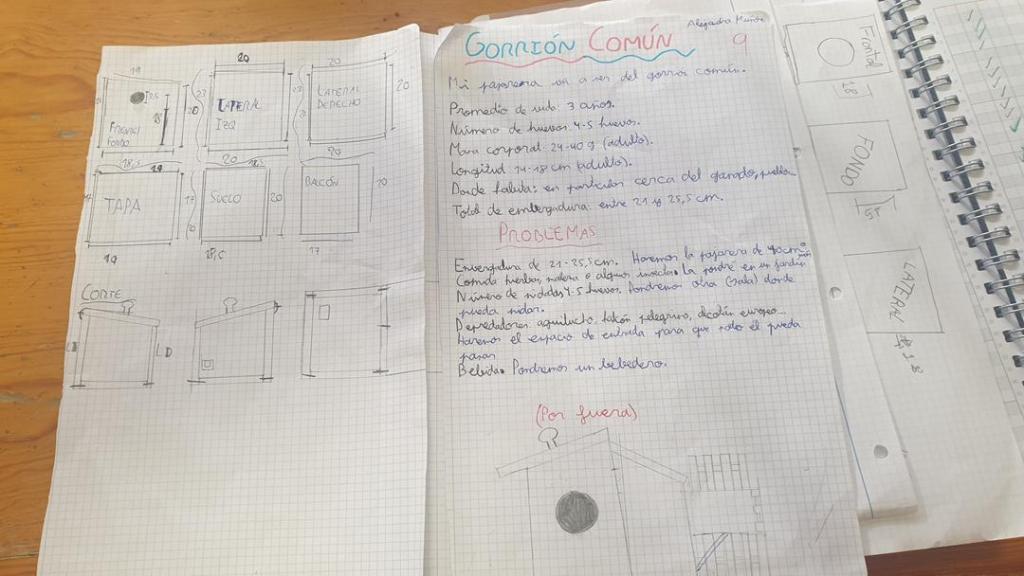 20
20
20
LATERAL
IZQ
LATERAL
DERECHO
FONDO
18,5
20
20
TAPA
SUELO
20
BALCÓN
20
19
18,5
17
CORTE
LD
Alejandra Muñoz
9
GORRIÓN COMÚN
Mi pajarera va a ser del gorrión común.
Promedio de vida: 3 años.
Número de huevos: 4-5 huevos.
Masa corporal: 24-40 g (adulto).
Longitud 14-18 cm (adulto).
Donde habita: en particular cerca del ganado, pueblos
Total de embergadura: entre 21 y 25,5 cm.
PROBLEMAS
Envergadura de 21-25,5 cm. Haremos la pajarera de 40cm
Comida: hierbas, o algunos insectos. La pondré en un jardín
Número de nidadas 4-5 huevos. Pondremos otra (sala) donde
pueda nidar.
Depredadores: aguilucho, halcón pelegrino, europeo...
Haremos el espacio de entrada para que solo él pueda
pasar.
Bebida: Pondremos un bebedero.
(Por fuera)
Frontal
FONDO
LATERAL